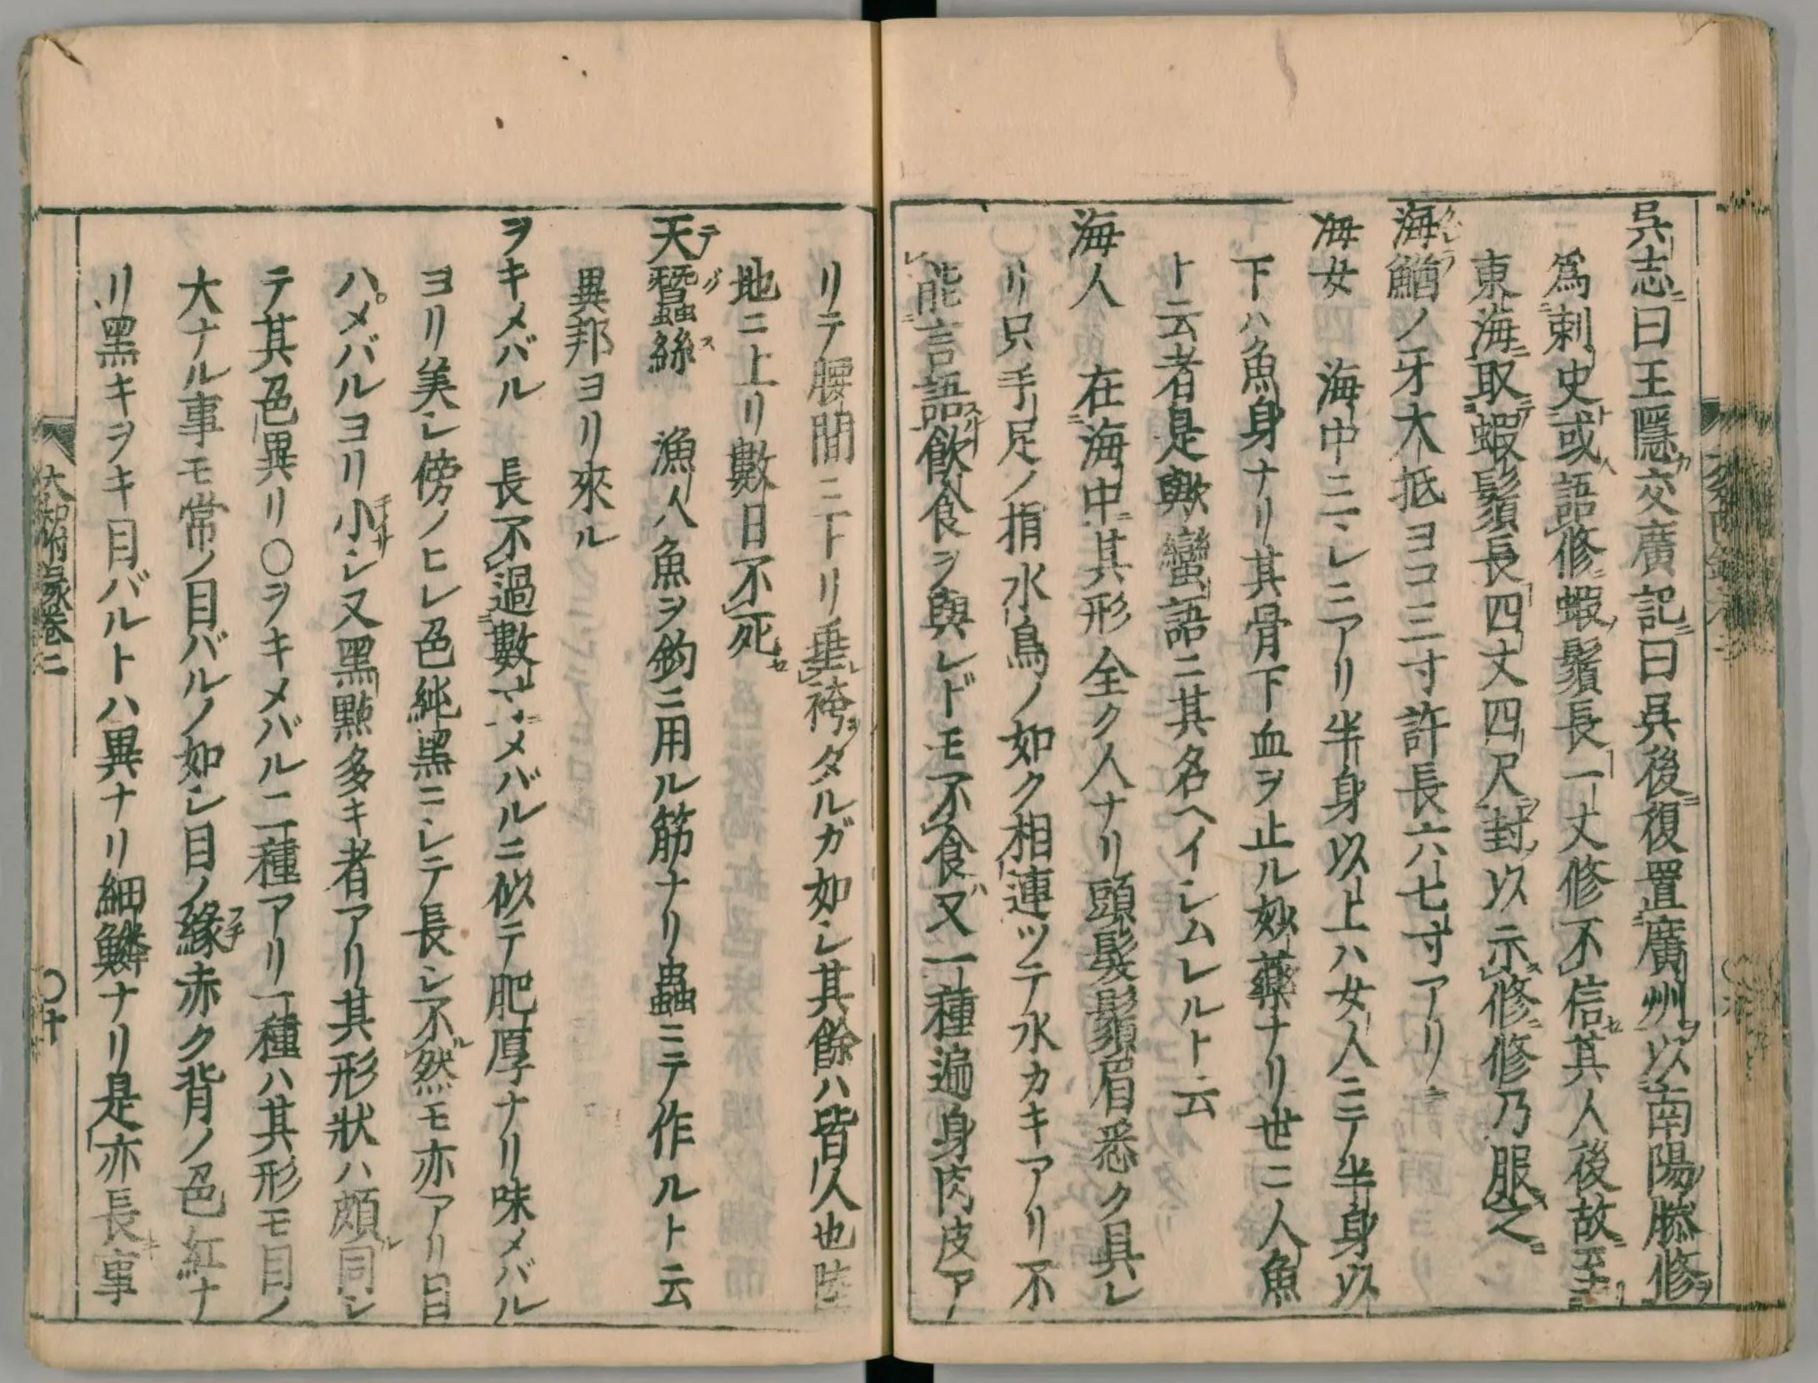 呉志曰王隱交廣記曰呉後復置廣州以南陽滕修
爲刺史或語修蝦鬚長一丈修不信其人後故至
東海取蝦鬚長四丈四尺封以示修修乃服之
海鰌ノ牙大抵ヨコ三寸許長六七寸アリ
海女 海中ニマレニアリ半身以上ハ女人ニテ半身以
下ハ魚身ナリ其骨下血ヲ止ル妙藥ナリ世ニ人魚
ト云者是歟蠻語ニ其名ヘイシムレルト云
海人 在海中其形全ク人ナリ頭髮鬚眉悉ク具レ
リ只手足ノ指水鳥ノ如ク相連ツテ水カキアリ不
能言語飮食ヲ與レドモ不食又一種遍身肉皮アリ
リテ腰間ニ下リ垂袴タルガ如シ其餘ハ皆人也陸
地ニ上リ數日不死
天蠶絲 漁人魚ヲ釣ニ用ル筋ナリ蟲ニテ作ルト云
異邦ヨリ來ル
ヲキメバル 長不過數寸メバルニ似テ肥厚ナリ味メバル
ヨリ美シ傍ノヒレ色純黑ニシテ長シ不然モ亦アリ目
ハメバルヨリ小シ又黑點多キ者アリ其形狀ハ頗同シ
テ其色異リ〇ヲキメバル二種アリ一種ハ其形モ目ノ
大ナル事モ常ノ目バルノ如シ目ノ緣赤ク背ノ色紅ナ
リ黑キヲキ目バルトハ異ナリ細鱗ナリ是亦長事
大和本草附録卷二
〇十